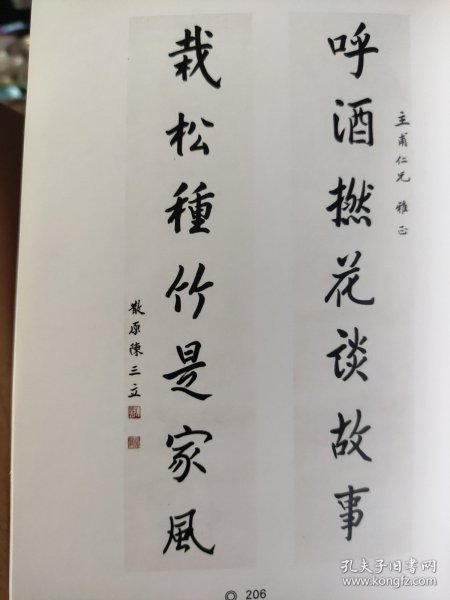 呼酒撚花談故事
主甫仁兄 雅正
栽松種竹是家風
散原陳三立
206
孔夫子旧书网
www.kongfz.com